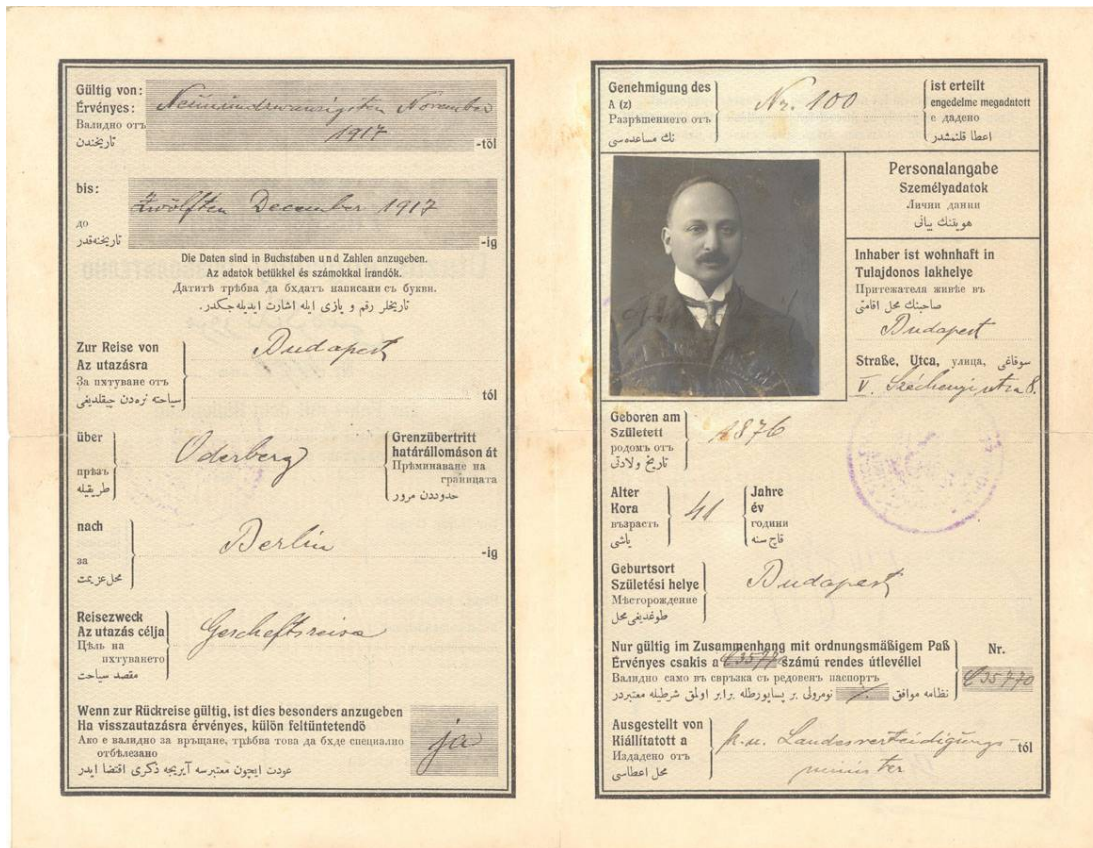 Gültig von:
Érvényes:
Валидно отъ
تاريخندن
Neunundzwanzigsten November
1917
-töl
bis:
до
تاريخنه‌قدر
Zwölften December 1917
-ig
Die Daten sind in Buchstaben und Zahlen anzugeben.
Az adatok betükkel és számokkal irandók.
Датитѣ трѣбва да бѫдатъ написани съ букви.
تاريخلر رقم و يازى ايله اشارت ايديله‌جكدر.
Zur Reise von
Az utazásra
За пѫтуване отъ
سياحته نره‌دن چيقلديغى
Budapest
tól
über
прѣзъ
طريقيله
Oderberg
Grenzübertritt
határállomáson át
Прѣминаване на
границата
حدوددن مرور
nach
за
محل عزيمت
Berlin
-ig
Reisezweck
Az utazás célja
Цѣль на
пѫтуването
مقصد سياحت
Gescheftsreise
Wenn zur Rückreise gültig, ist dies besonders anzugeben
Ha visszautazásra érvényes, külön feltüntetendö
Ако е валидно за връщане, трѣбва това да бѫде специално
отбѣлезано
عودت ايچون معتبرسه آيريجه ذكرى اقتضا ايدر
ja
Genehmigung des
A (z)
Разрѣшението отъ
نك مساعده‌سى
Nr. 100
ist erteilt
engedelme megadatott
е дадено
اعطا قلنمشدر
Personalangabe
Személyadatok
Лични данни
هويتنك بيانى
Inhaber ist wohnhaft in
Tulajdonos lakhelye
Притежателя живѣе въ
صاحبنك محل اقامتى
Budapest
Straße, Utca, улица, سوقاغى
V. Széchenyi utca 8.
Geboren am
Született
родомъ отъ
تاريخ ولادتى
1876
Alter
Kora
възрастъ
ياشى
41
Jahre
év
години
قاچ سنه
Geburtsort
Születési helye
Мѣсторождение
طوغديغى محل
Budapest
Nur gültig im Zusammenhang mit ordnungsmäßigem Paß
Érvényes csakis a számú rendes útlevéllel
Валидно само въ свръзка съ редовенъ паспортъ
نظامه موافق نومرولى بر پساپورطله برابر اولمق شرطيله معتبردر
Nr.
35770
Ausgestellt von
Kiállítatott a
Издадено отъ
محل اعطاسى
k. u. Landesverteidigungs-
minister
tól